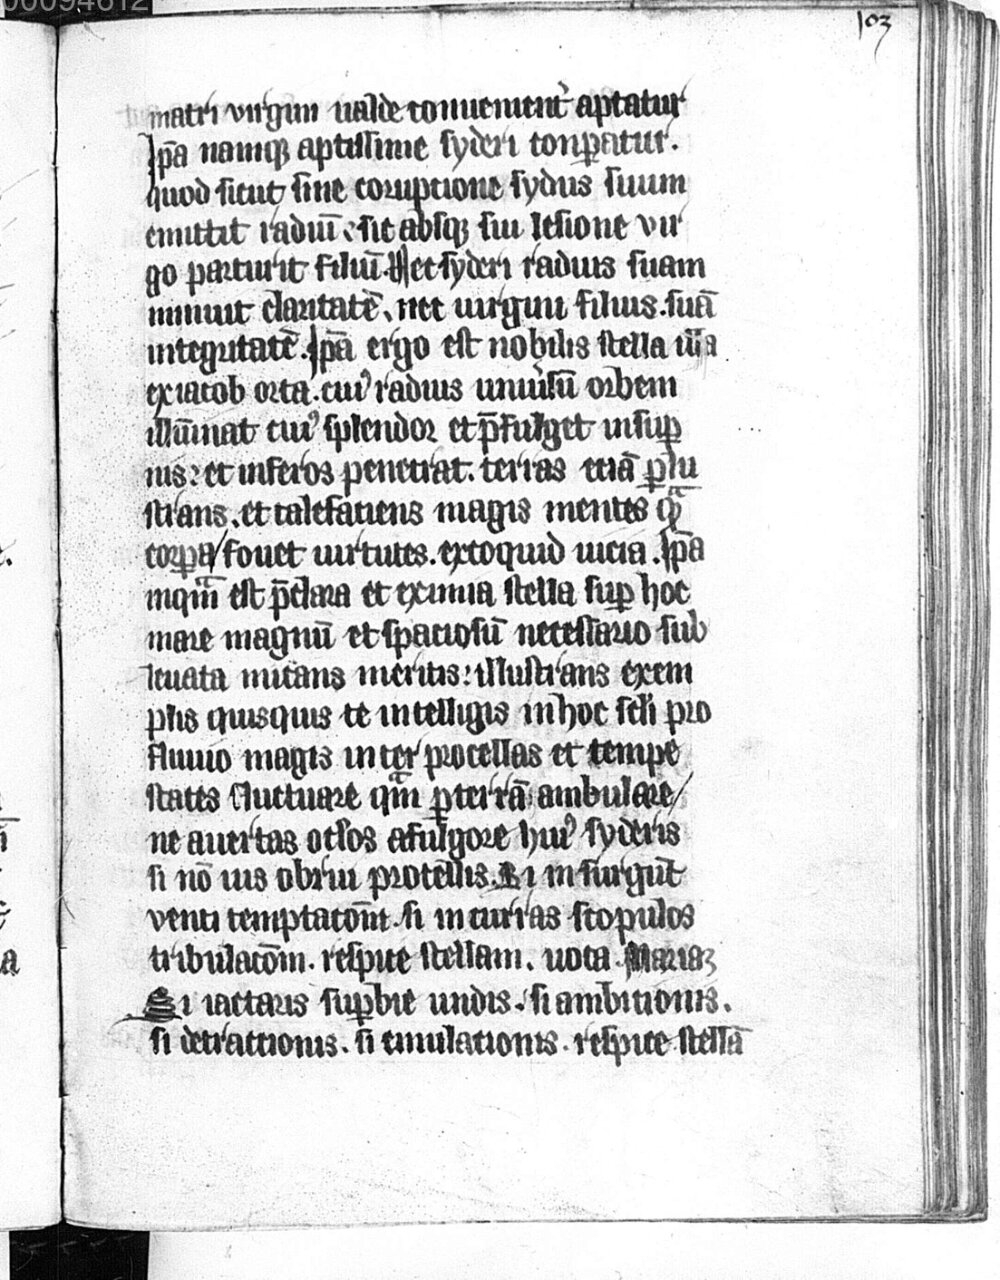 00094612
103
matri virgini ualde conuenient᷑ aptatur
Ip̄a namqꝫ aptissime syderi conꝑatur.
quod sicut sine corruptione sydus suum
emittit radiū. sic absqꝫ sui lesione vir
go parturit filiū. Nec syderi radius suam
minuit claritatē, nec uirgini filius. suā
integritatē. Ip̄a ergo est nobilis stella illa
ex iacob orta. cuiꝰ radius uniuˀsū orbem
illūinat cuiꝰ splendor et p̄fulget in suꝑ
nis: et inferos penetrat. terras etiā ꝑlu
strans. et calefatiens magis mentes qͣ
corꝑa fouet uirtutes. excoquid uicia. Ip̄a
inqͣm est p̄clara et eximia stella suꝑ hoc
mare magnū et spaciosū necessario sub
leuata micans meritis: illustrans exem
plis quisquis te intelligis in hoc scl̄i pro
fluuio magis inter procellas et tempe
states fluctuare qͣm ꝑ terrā ambulare
ne auertas oc̄l̄os a fulgore huiꝰ syderis
si nō uis obrui procellis. Si insurgūt
venti temptatōm̄. si incurras scopulos
tribulacōm̄. respice stellam. uoca. Mariaꝫ
Si iactaris suꝑbie undis. si ambitionis.
si detractionis. si emulationis. respice stellā